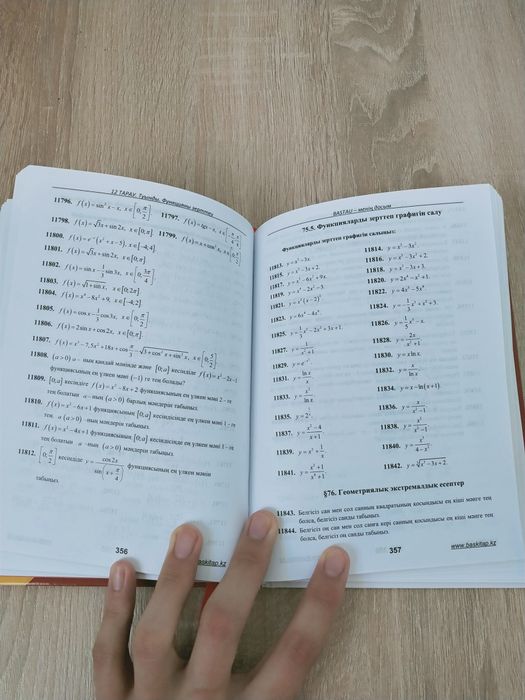 12 ТАРАУ. Туынды. Функцияны зерттеу
11796. f(x)=sin² x-x, x∈[0;π/2]
11797. f(x)=tgx-x, x∈
11798. f(x)=√3x+sin2x, x∈[0;π].
11799. f(x)=x+sin² x, x∈
11800. f(x)=e⁻ˣ(x²+x-5), x∈[-4;4].
11801. f(x)=√3x+sin2x, x∈[0;π].
11802. f(x)=sin x-1/3 sin3x, x∈[0;3π/4]
11803. f(x)=√(1+sin x), x∈[0;2π]
11804. f(x)=x⁴-8x²+9, x∈[-4;2]
11805. f(x)=cos x-1/3 cos3x, x∈[0;π/2]
11806. f(x)=2sin x+cos2x, x∈[0;π].
11807.
11808. (a>0) a - ның қандай мәнінде және [0;a] кесіндіде f(x)=x²-2x-1
функциясының ең үлкен мәні (-1) ге тең болады?
11809. [0;a] кесіндіде f(x)=x²-8x+2 функциясының ең үлкен мәні 2 - ге
тең болатын a -ның (a>0) барлық мәндерін табыңыз.
11810. f(x)=x²-6x+1 функциясының [0;a] кесіндісінде ең үлкен мәні 1 - ге
тең a (a>0) -ның мәндерін табыңыз.
11811. f(x)=x²-4x+1 функциясының [0;a] кесіндісінде ең үлкен мәні 1- ге
тең болатын a -ның (a>0) мәндерін табыңыз.
11812. [0;π/2] кесіндіде y=cos2x/sin(x+π/4) функциясының ең үлкен мәнін
табыңыз.
356
baskitap.kz
BASTAU – менің досым
75.5. Функцияларды зерттеп графигін салу
Функцияларды зерттеп графигін салыңыз:
11813. y=x³-3x.
11814. y=x³-3x².
11815. y=x³-3x+2.
11816. y=x³-3x²+2.
11817. y=x³-6x²+9x.
11818. y=x³-3x+3.
11819. y=x³-2x²-3.
11820. y=2x⁴-x²+1.
11821. y=x²(x-2)²
11822. y=4x³-5x⁴
11823. y=6x²-4x³.
11824.
11825. y=1/3x³-2x²+3x+1.
11826. y=1/5x⁵-x.
11827. y=1/(x²+1)
11828. y=2x/(x²+1)
11829.
11830. y=xln x.
11831. y=ln x/x
11832. y=x/ln x
11833. y=x/ln x
11834. y=x-ln(x+1)
11835.
11836.
11837. y=(x²-4)/(x+1)
11838.
11839.
11840.
11841.
11842.
§76. Геометриялық экстремалдық есептер
11843. Белгісіз сан мен сол санның квадратының қосындысы ең кіші мәнге тең
болса, белгісіз санды табыңыз.
11844. Белгісіз оң сан мен сол санға кері санның қосындысы ең кіші мәнге тең
болса, белгісіз оң санды табыңыз.
357
www.baskitap.kz